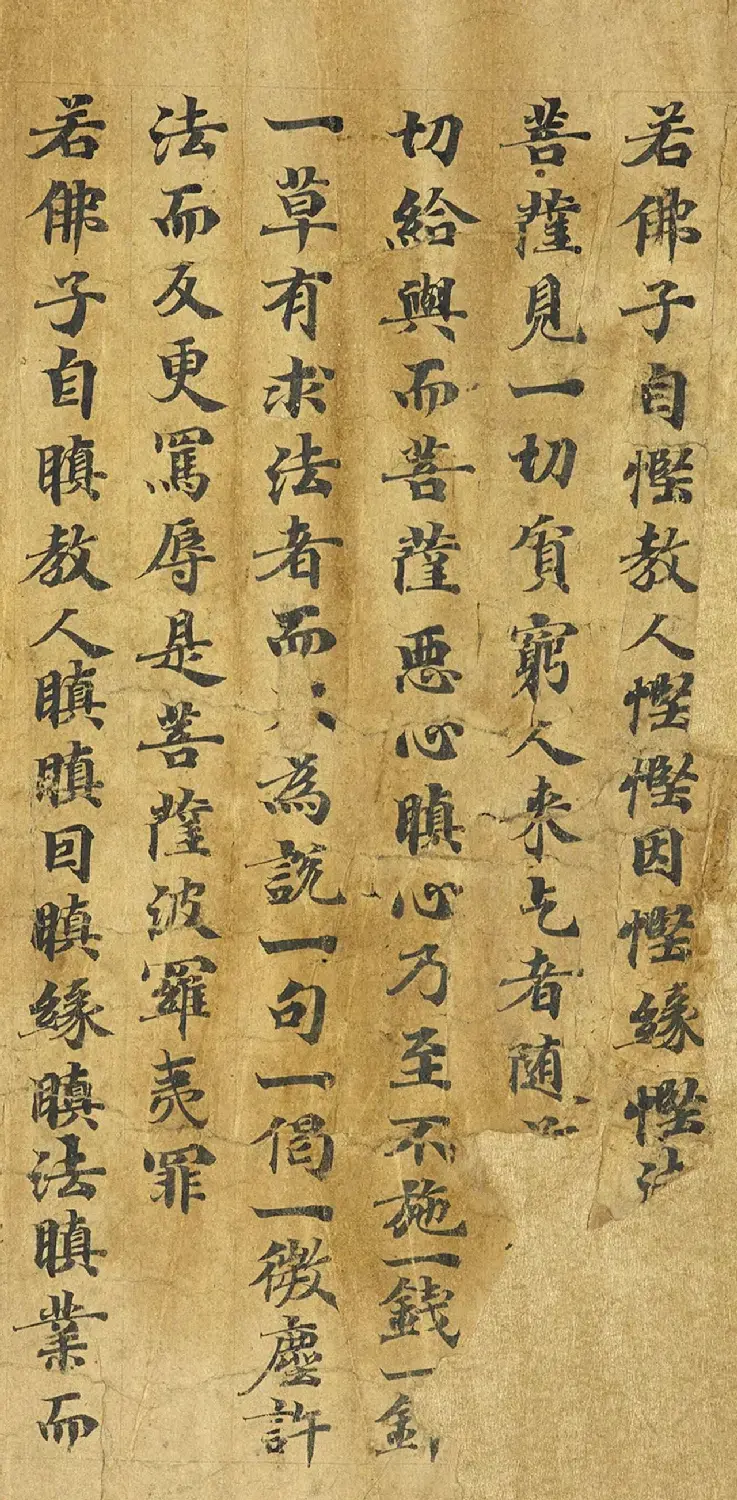 若佛子自慳教人慳慳因慳緣慳法
菩薩見一切貧窮人来乞者随
切給與而菩薩悪心瞋心乃至不施一錢一
一草有求法者而不為說一句一偈一微塵許
法而反更罵辱是菩薩波羅夷罪
若佛子自瞋教人瞋瞋因瞋緣瞋法瞋業而